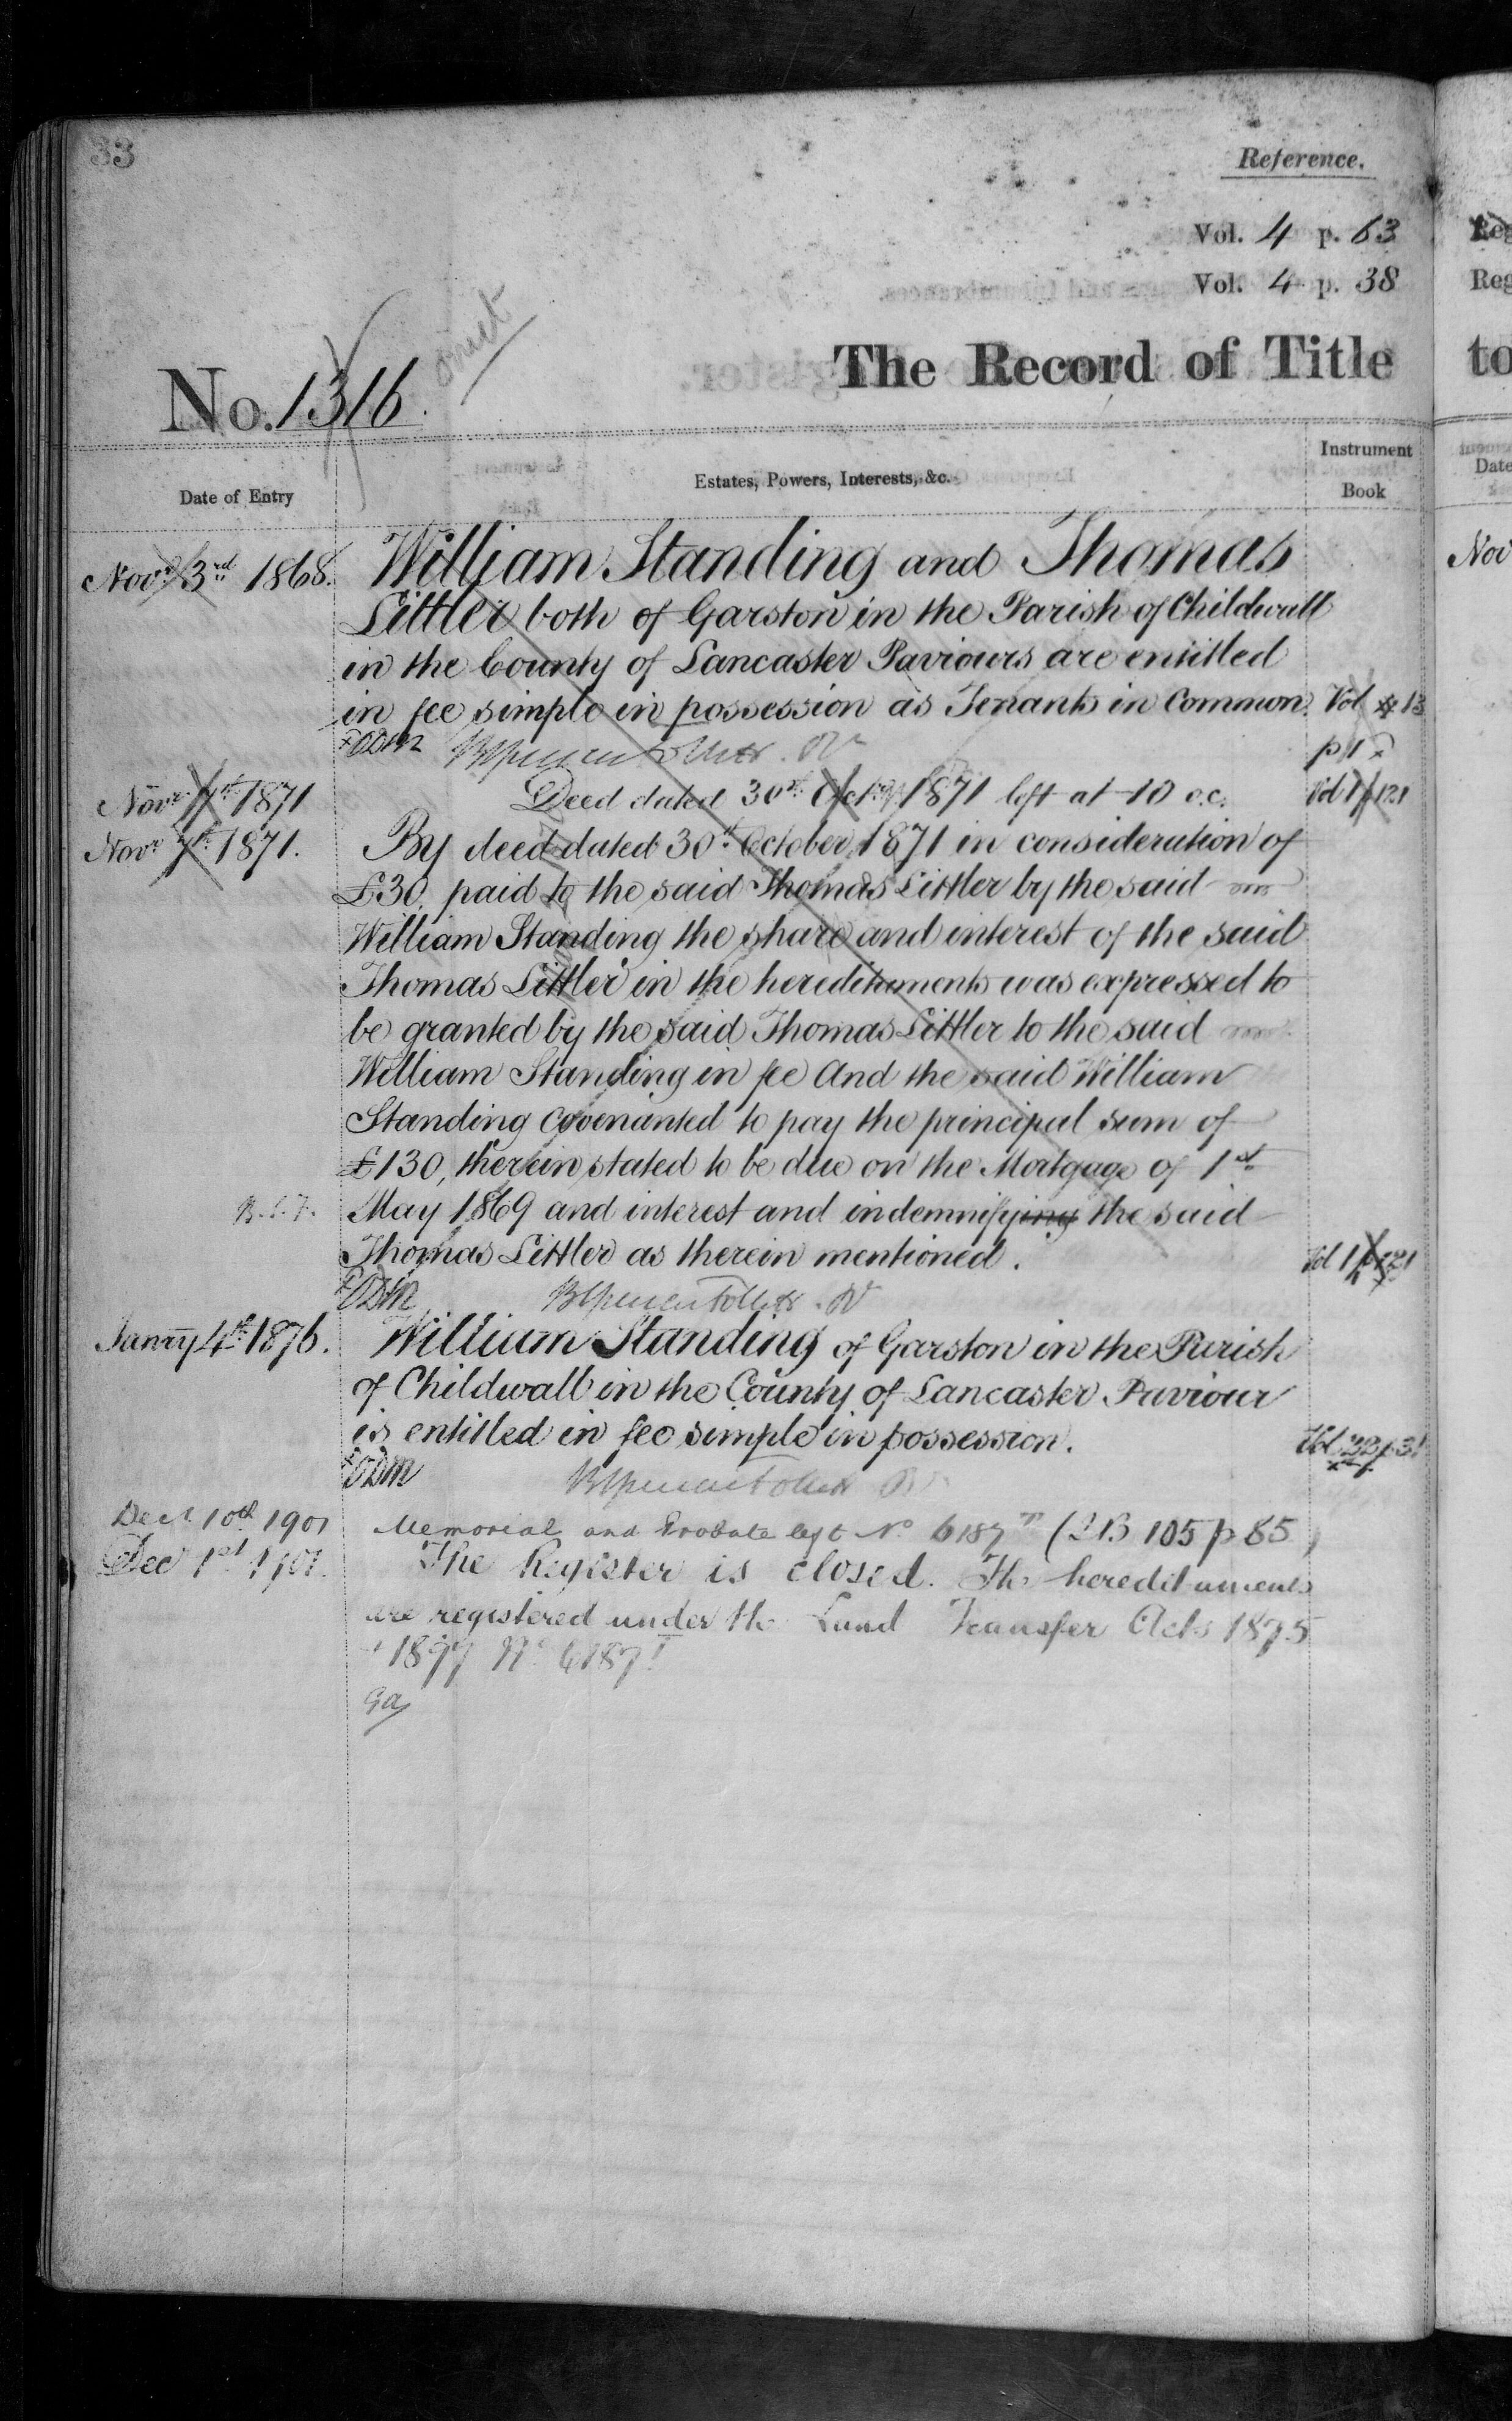 33
Reference.
Vol. 4 p. 63
Vol. 4 p. 38
omit
The Record of Title
No. 1316.
Date of Entry
Estates, Powers, Interests, &c.
Instrument
Book
Novr 3rd 1868. William Standing and Thomas
Littler both of Garston in the Parish of Childwall
in the County of Lancaster Paviours are entitled
in fee simple in possession as Tenants in Common. Vol
Novr 1871 Deed dated 30th Octr 1871 left at 10 o.c. Vol 1 p 121
Novr 7th 1871. By deed dated 30th October 1871 in consideration of
£30, paid to the said Thomas Littler by the said
William Standing the share and interest of the said
Thomas Littler in the hereditaments was expressed to
be granted by the said Thomas Littler to the said
William Standing in fee And the said William
Standing covenanted to pay the principal sum of
£130, therein stated to be due on the Mortgage of 1st
May 1869 and interest and indemnifying the said
Thomas Littler as therein mentioned. Vol 1 p 121
Janry 4th 1876. William Standing of Garston in the Parish
of Childwall in the County of Lancaster Paviour
is entitled in fee simple in possession. Vol 22 p 31
Dec 10th 1901 Memorial and Probate left No 6187 105 p 85
Dec 1st 1901. The Register is closed. The hereditaments
are registered under the Land Transfer Acts 1875
1897 No 6187
Reg
Reg
to
Date
Nov